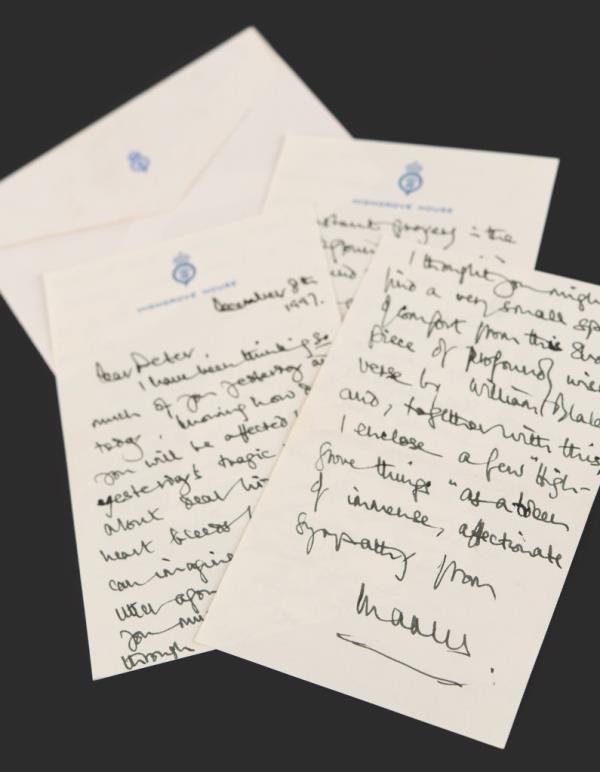 HIGHGROVE HOUSE
December 8th
1997.
Dear Peter
I have been thinking so
much of you yesterday
today, knowing how
you will be affected
yesterday's tragic
about dear
heart bleeds
can imagine
utter
you
through
HIGHGROVE HOUSE
prayers in the
I thought you might
find a very small
of comfort from this
piece of profound
verse by William Blake
and, together with this
I enclose a few "High-
grove things" as a token
of immense, affectionate
sympathy from
Charles